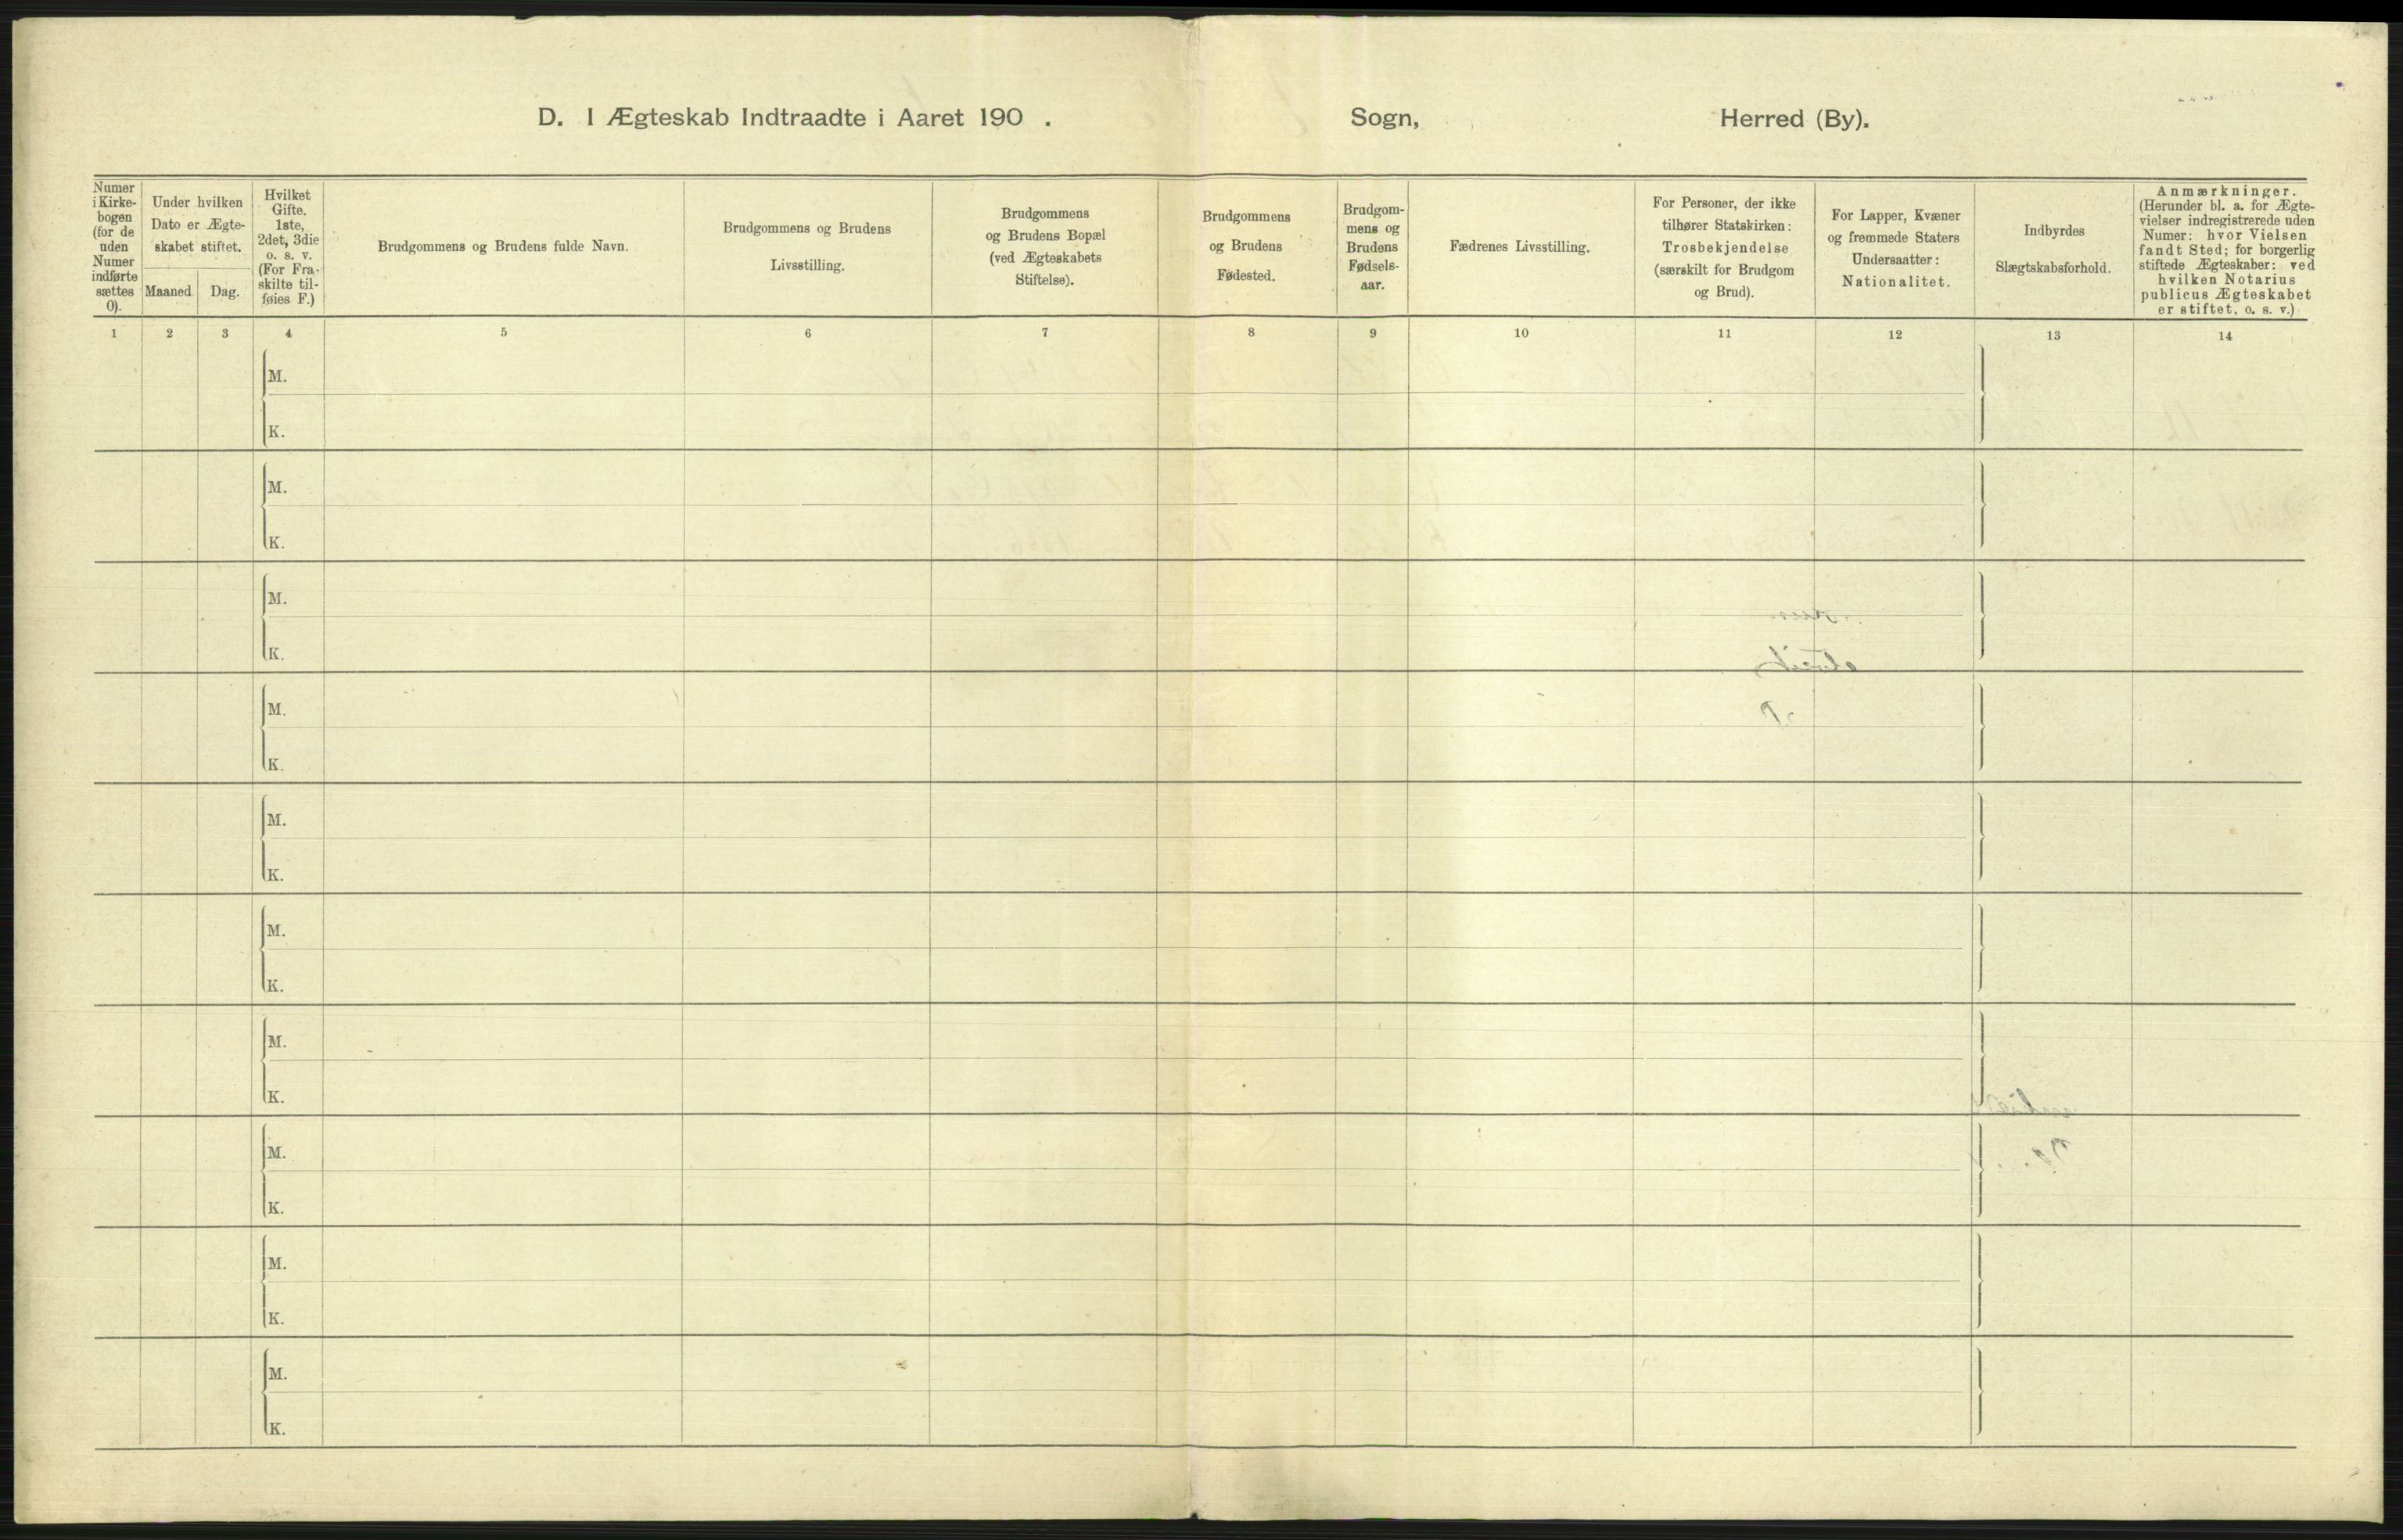 D. I Ægteskab Indtraadte i Aaret 190 . Sogn, Herred (By).
Numer
i Kirke-
bogen
(for de
uden
Numer
indførte
sættes
0).
Under hvilken
Dato er Ægte-
skabet stiftet.
Maaned
Dag.
Hvilket
Gifte.
1ste,
2det, 3die
o. s. v.
(For Fra-
skilte til-
føies F.)
Brudgommens og Brudens fulde Navn.
Brudgommens og Brudens
Livsstilling.
Brudgommens
og Brudens Bopæl
(ved Ægteskabets
Stiftelse).
Brudgommens
og Brudens
Fødested.
Brudgom-
mens og
Brudens
Fødsels-
aar.
Fædrenes Livsstilling.
For Personer, der ikke
tilhører Statskirken:
Trosbekjendelse
(særskilt for Brudgom
og Brud).
For Lapper, Kvæner
og fremmede Staters
Undersaatter:
Nationalitet.
Indbyrdes
Slægtskabsforhold.
Anmærkninger.
(Herunder bl. a. for Ægte-
vielser indregistrerede uden
Numer: hvor Vielsen
fandt Sted; for borgerlig
stiftede Ægteskaber: ved
hvilken Notarius
publicus Ægteskabet
er stiftet, o. s. v.)
1 2 3 4 5 6 7 8 9 10 11 12 13 14
M.
K.
M.
K.
M.
K.
M.
K.
M.
K.
M.
K.
M.
K.
M.
K.
M.
K.
M.
K.